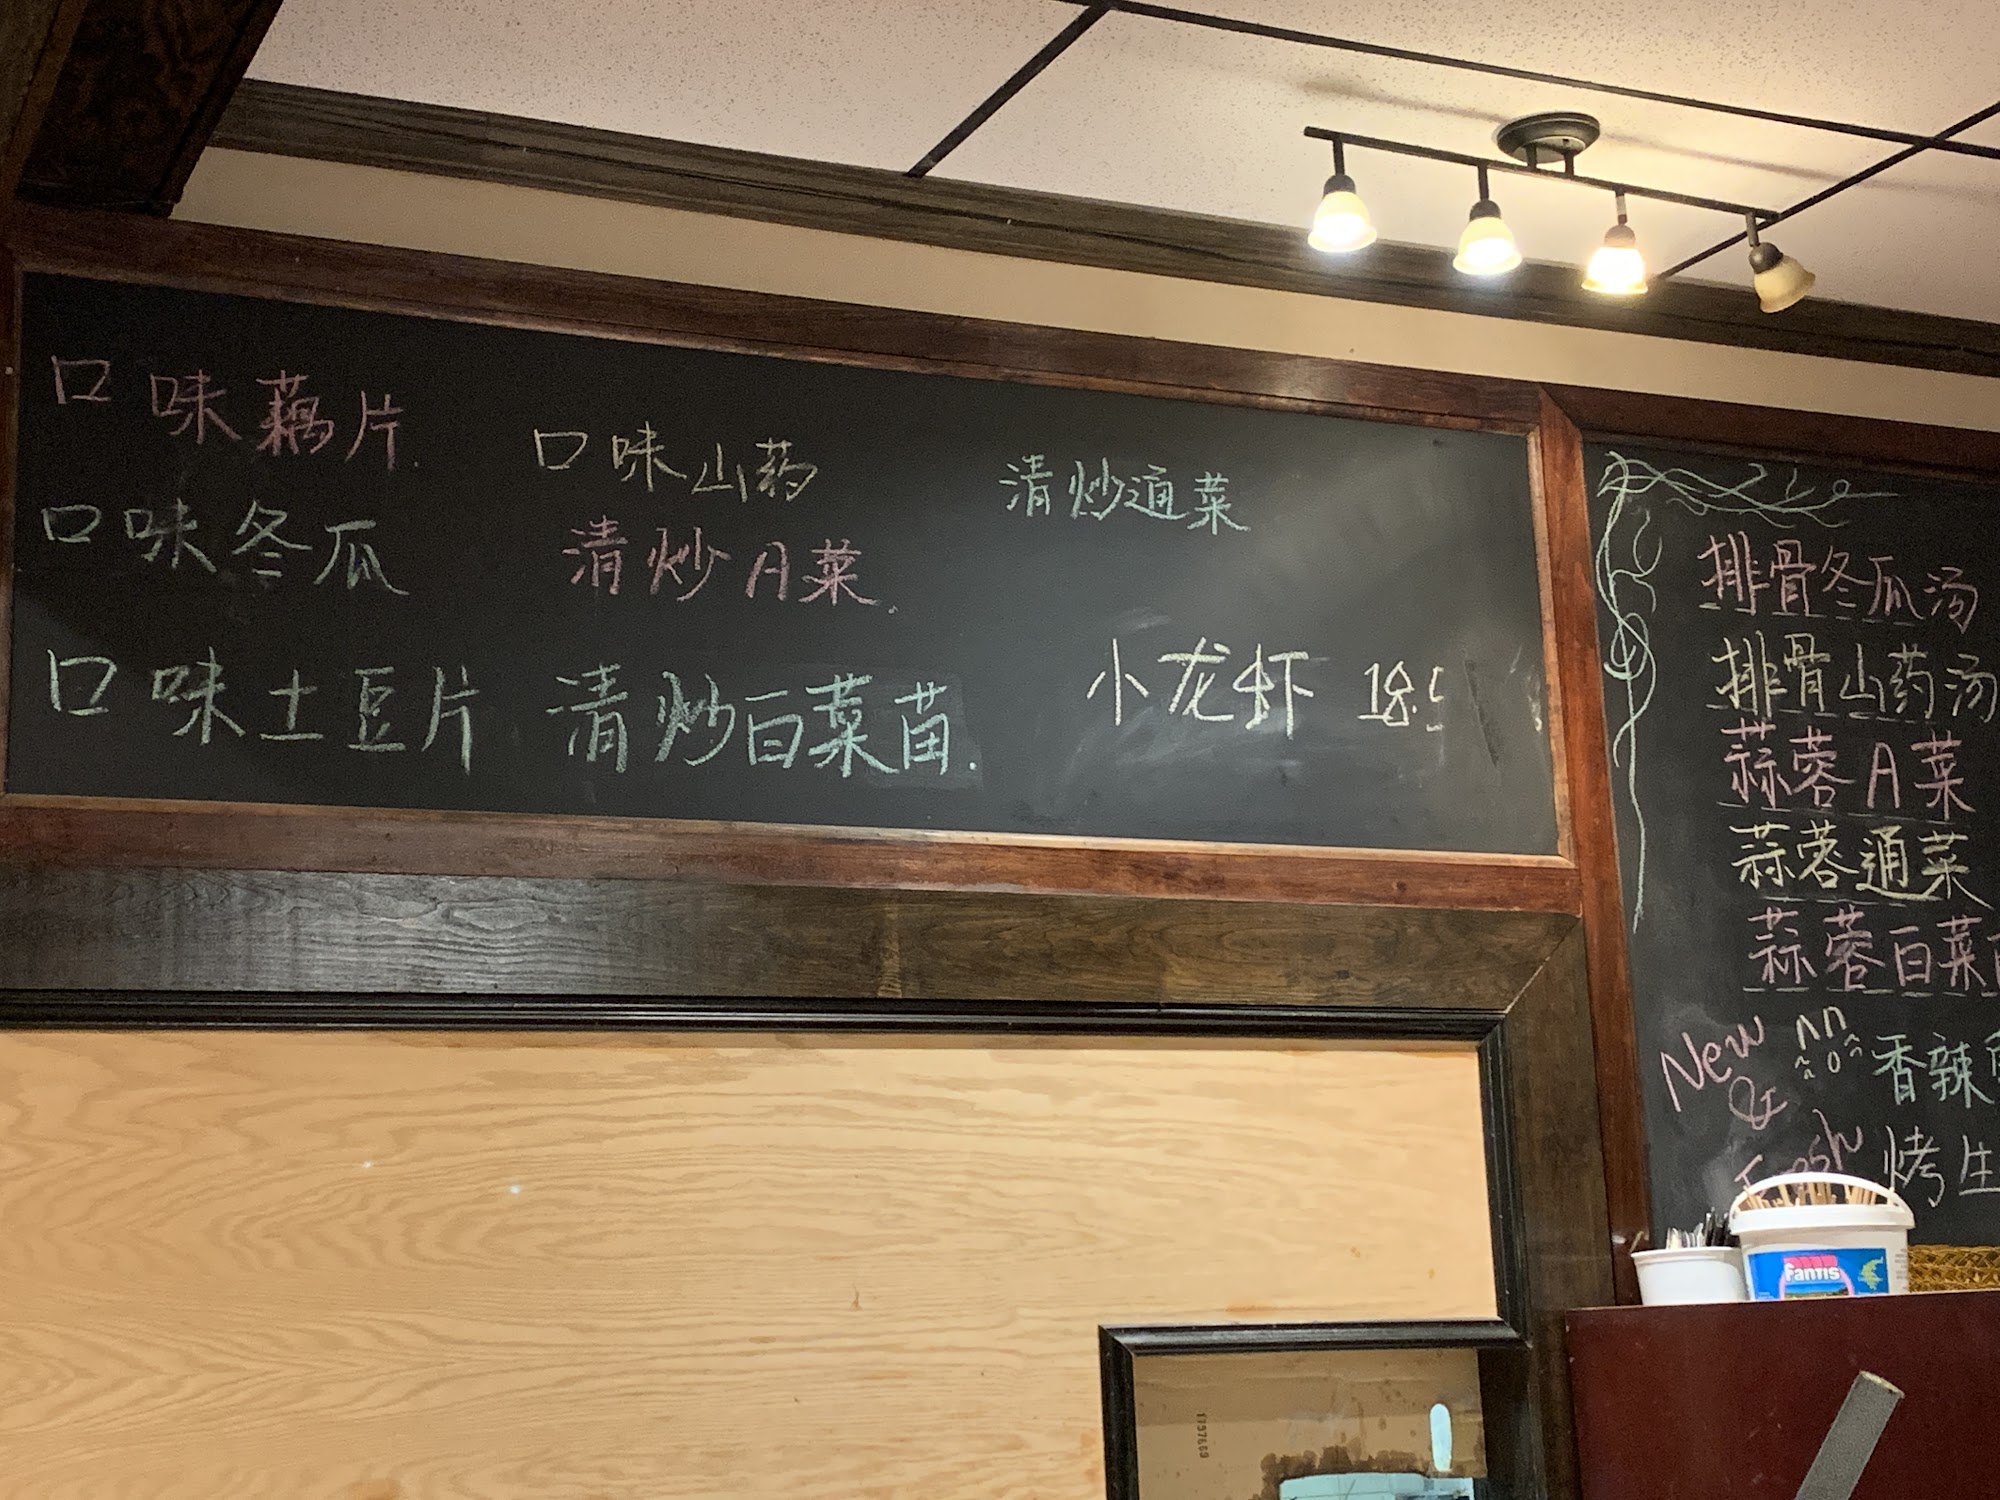 口味藕片.
口味山药
清炒通菜
口味冬瓜
清炒A菜.
口味土豆片
清炒白菜苗.
小龙虾 18.5
排骨冬瓜汤
排骨山药汤
蒜蓉A菜
蒜蓉通菜
蒜蓉白菜
New
&
Fresh
香辣
烤生
Fantis